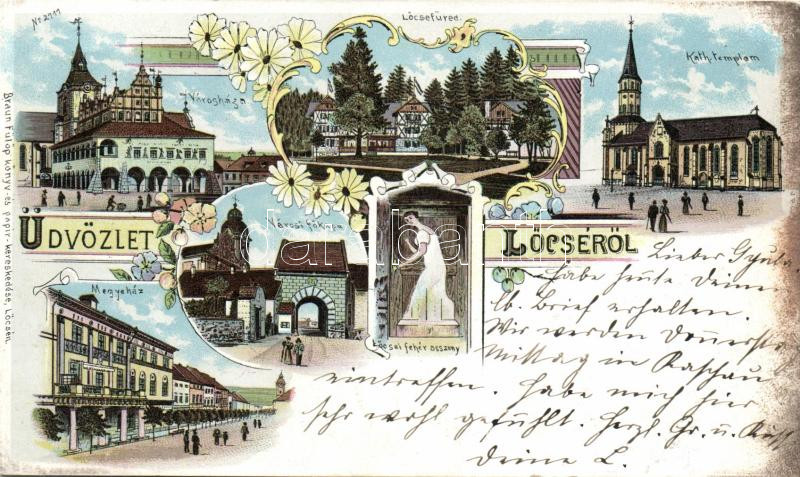 Nr. 2711
Löcsefüred.
Városháza
Kath. templom
ÜDVÖZLET LŐCSÉRŐL
Városi főkapu
Megyeház
Lőcsei fehér asszony
Braun Fülöp könyv- és papir-kereskedése, Lőcsén.
darabanth
Lieber Gyula
habe heute Deine
lb. Brief erhalten.
Wir werden Donnerstg
Mittag in Kaschau
eintreffen. Habe mich hier
sehr wohl gefühlt. Herzl. Gr. u. Kuß
Deine L.